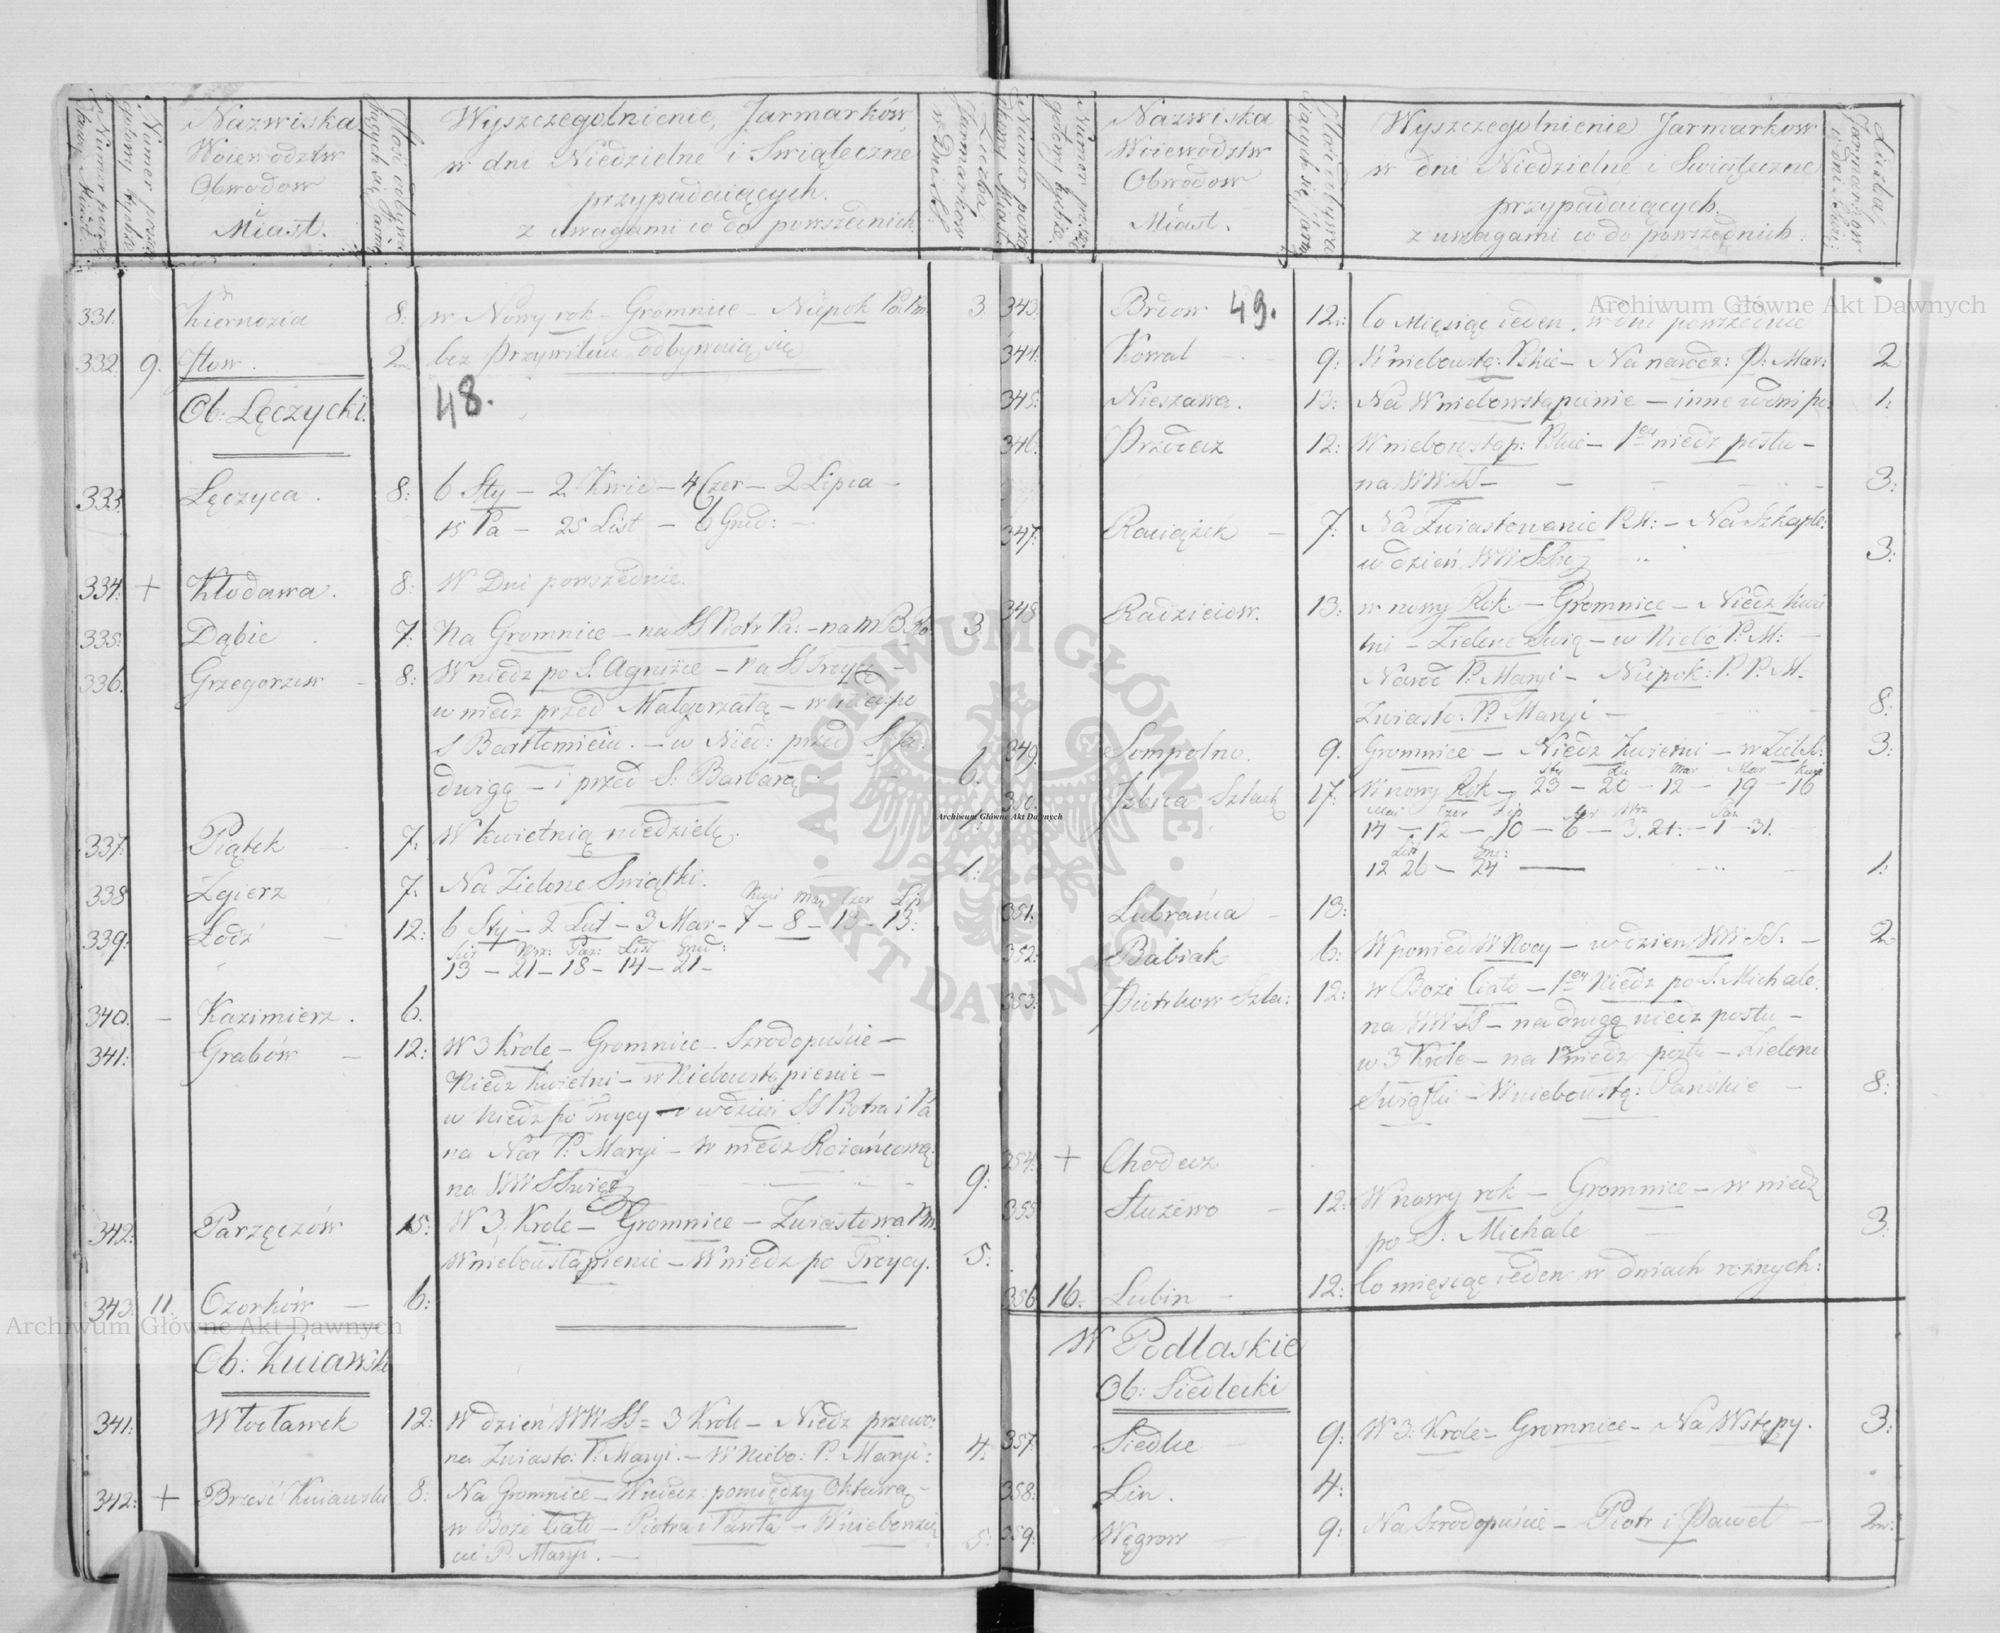 Numer porządkowy Miast.
Numer porządkowy
Nazwiska
Woiewodztw
Obwodow
i
Miast.
Wyszczegolnienie, Jarmarków,
w dni Niedzielne i Swiąteczne
przypadaiących.
z uwagami co do powszednich
Liczba
Jarmarków
331. Kiernozia 8: w Nowy rok – Gromnice – Niepok Pa Ma. 3.
332. 9. Iłow. 2. bez Przywileiu odbywaią się
Ob: Łęczycki.
48.
333. Łęczyca. 8: 6 Sty – 2 Kwie – 4 Czer – 2 Lipca –
15 Pa – 25 List – 6 Gru: –
334. + Kłodawa. 8: W Dni powszednie.
335. Dąbie 7: Na Gromnice – na SS Piotr Pa: – na M B Ro 3.
336. Grzegorzew – 8: W niedz po S. Agniżce – na S Trojcę –
w niedz przed Małgorzatą – w niedz. po
S Bartłomieiu. – w Nied: przed S Ja:
dwigą – i przed S: Barbarą. 6.
337. Piątek – 7: W kwietnią niedzielę. 1.
338 Zgierz 7. Na Zielone Swiątki. 1.
Kwi May Czer Lip
339. Łodź – 12: 6 Sty – 2 Lut – 3 Mar – 7 – 8 – 13 – 13:
Sier Wrz: Paz: List Grud:
13 – 21 – 18 – 14 – 21 –
340. – Kazimierz. 6.
341: Grabów – 12: W 3 Krole – Gromnice – Szrodopuście –
Niedz kwietni – w Niebowstąpienie –
w Niedz po Troycy – w dzień SS Piotra i Pa
na Nar P: Maryi – w niedz Rożańcową:
na WW SSwięt 9:
342: Parzęczów 15: W 3 Krole – Gromnice – Zwiastowa P M.
Wniebowstąpienie – W niedz po Troycy. 5:
343: 11. Ozorków – 6:
Ob: Kuiawski
341: Włocławek 12: W dzień WW SS = 3 Krole – Niedz przewo:
na Zwiasto: P. Maryi. – W Niebo: P. Maryi: 4:
342: + Brześć Kuiawski 8: Na Gromnice – W niedz: pomiędzy Oktawą –
w Boże Ciało – Piotra i Pawła – W niebowzię
cie P. Maryi. – 5:
Nazwiska
Woiewodztw
Obwodow
i
Miast.
Wyszczegolnienie Jarmarkow
w dni Niedzielne i Swiąteczne
przypadaiących.
z uwagami co do powszednich:
Liczba
Jarmarków
343: Brdow 49. 12: Co Miesiąc ieden. w dni powszednie
344: Kowal – 9: W niebowstą: Pskie – Na narodz: P: Mar: 2
345: Nieszawa. 13: Na Wniebowstąpienie – inne w dni po: 1:
346: Przedecz 12: W niebowstąp: Pskie – 1ą niedz postu –
na WW SS – 3:
347: Raciążek – 7: Na Zwiastowanie P. M: – Na Szkaple:
w dzień WW SS 3:
348 Radzieiow. 13: w nowy Rok. – Gromnice – Niedz kwie
tni – Zielone Swią – w Niebo P. M: –
Narod P. Maryi – Niepok: P. P. M.
Zwiasto: P. Maryi – 8:
349. Sompolno. 9. Gromnice – Niedz kwietni – w Ziel S: 3:
Sty Lu Mar Mar Kwie
350. Izbica Szlach 17: W nowy Rok – 23 – 20 – 12 – 19 – 16
Mai Czer Lip Sier Wrz Paz
14 – 12 – 10 – 6 – 3. 21: – 1 – 31.
List Gru:
12 26 – 24 – 1:
351. Lubrańca – 13:
352: Babiak 6: W poniedz W Nocy – w dzien WW SS: – 2
353: Piotrkow Szla: 12: w Boże Ciało – 1ą Niedz po S. Michale.
na WW SS – na drugą niedz postu –
w 3 Krole – na 1 niedz postu – Zielone
Swiątki – W niebowstą: Panskie – 8:
354: + Chodecz
355 Służewo – 12: W nowy rok – Gromnice – w niedz
po S: Michale 3:
356 16. Lubin – 12: Co miesiąc ieden w dniach roznych:
W Podlaskie
Ob: Siedlecki
357 Siedlce 9: W 3: Krole – Gromnice – Na Wstępy. 3:
358: Liw. 4:
359: Węgrow 9: Na Szrodopuście – Piotr i Paweł – 2
Archiwum Główne Akt Dawnych
ARCHIWUM GŁÓWNE AKT DAWNYCH
Archiwum Główne Akt Dawnych
Archiwum Główne Akt Dawnych